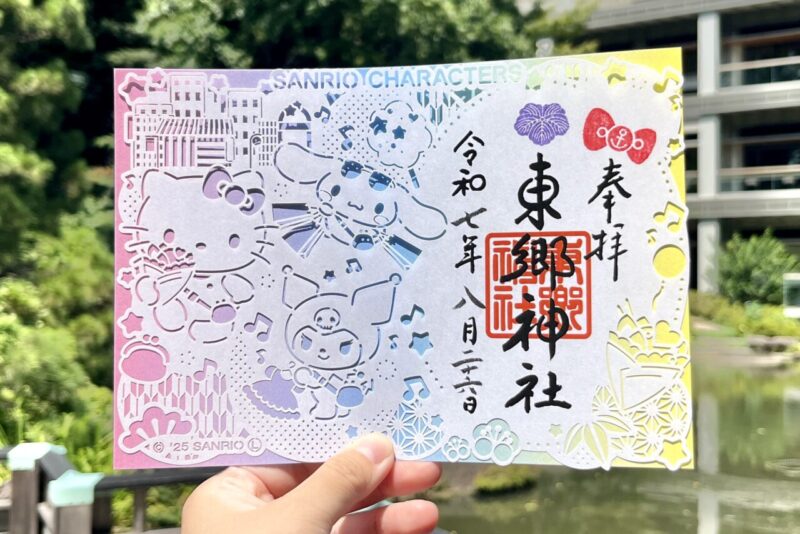 SANRIO CHARACTERS
奉拝
東郷神社
東郷神社
令和七年八月二十六日
© '25 SANRIO Ⓛ